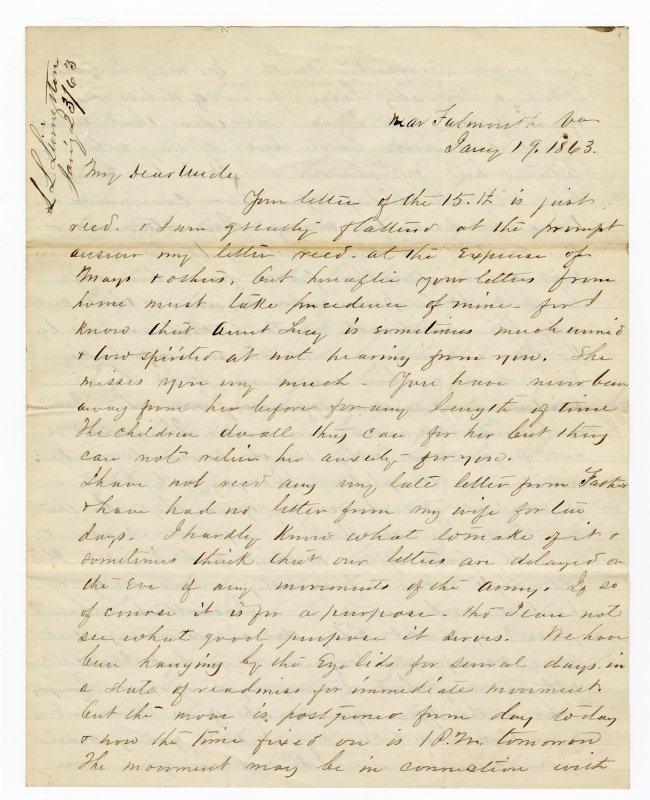 L L Livingston
Jany 23/63
near Falmouth Va
Jany 19. 1863.
My Dear Uncle
Your letter of the 15.th is just
recd. & I am greatly flattered at the prompt
answer my letter recd. at the Expense of
Mays & others, but hereafter your letters from
home must take precedence of mine - for I
know that Aunt Lucy is sometimes much worried
& low spirited at not hearing from you. She
misses you very much - You have never been
away from her before for any length of time
The children do all they can for her but they
can not relieve her anxiety - for you.
I have not recd any very late letter from Father
& have had no letter from my wife for ten
days. I hardly know what to make of it &
sometimes think that our letters are delayed on
the Eve of any movements of the army. If so
of course it is for a purpose - tho I can not
see what good purpose it serves. We have
been hanging by the Eye lids for several days in
a state of readiness for immediate movement.
but the move is postponed from day to day
& now the time fixed on is 1 P.M. tomorrow
The movement may be in connection with